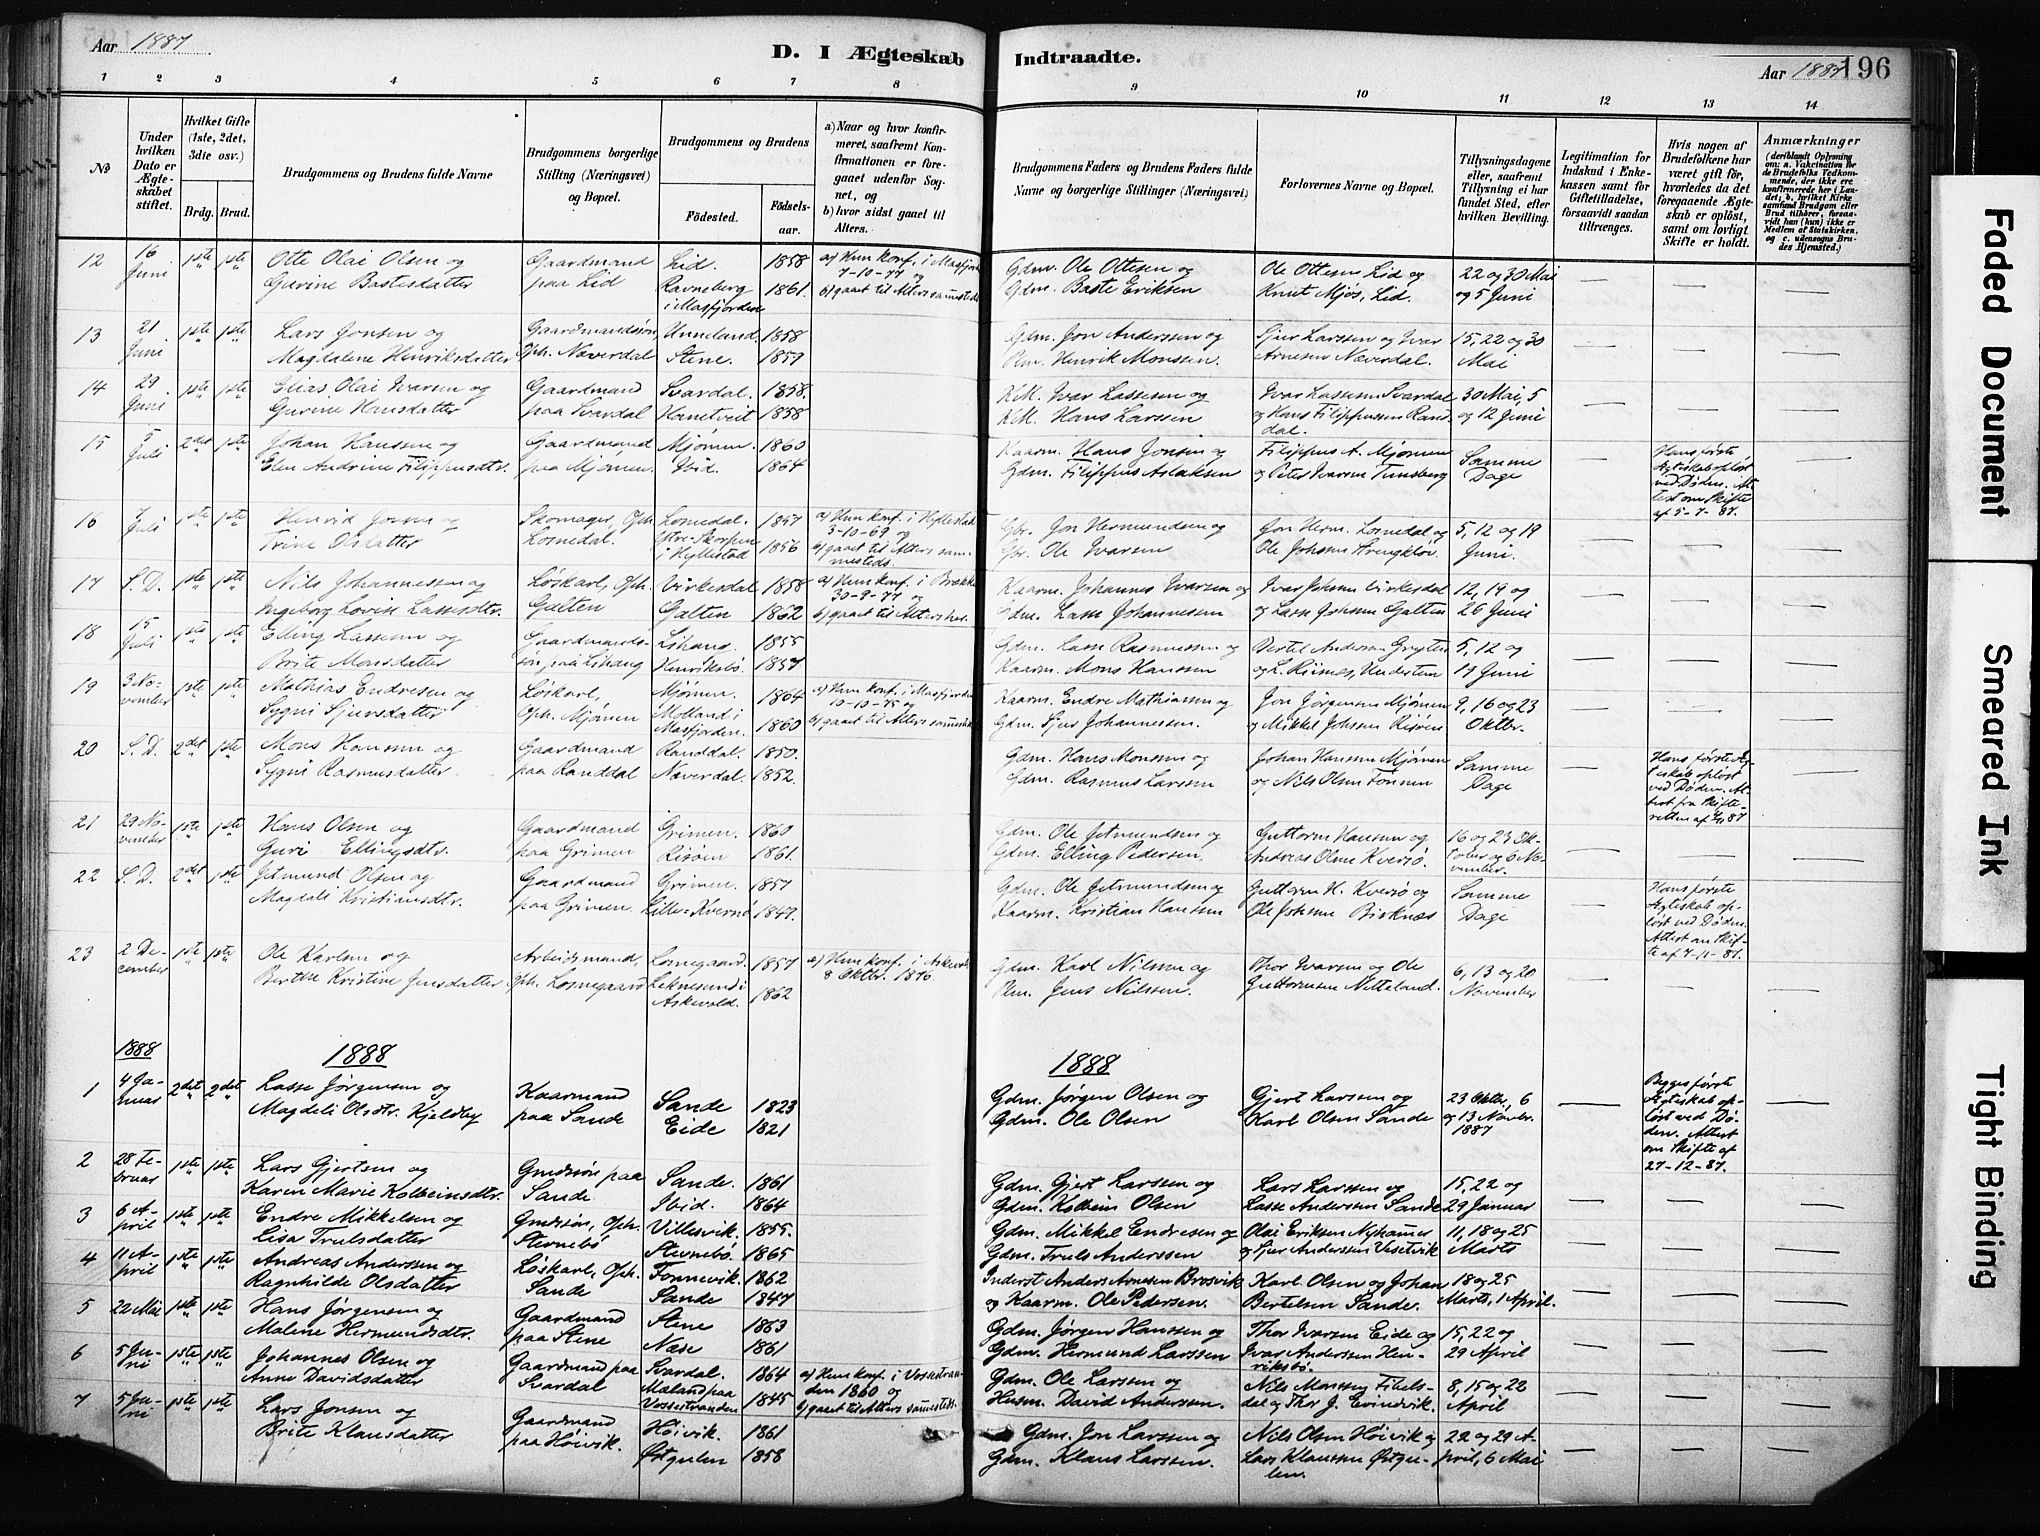 Aar 1887
D. I Ægteskab Indtraadte.
Aar 1887 196
1 2 3 4 5 6 7 8 9 10 11 12 13 14
№
Under hvilken Dato er Ægteskabet stiftet.
Hvilket Gifte (1ste, 2det, 3die osv.)
Brdg. Brud.
Brudgommens og Brudens fulde Navne
Brudgommens borgerlige Stilling (Næringsvei) og Bopæl.
Brudgommens og Brudens
Fødested.
Fødselsaar.
a) Naar og hvor konfirmeret, saafremt Konfirmationen er foregaaet udenfor Sognet, og
b) hvor sidst gaaet til Alters.
Brudgommens Faders og Brudens Faders fulde Navne og borgerlige Stillinger (Næringsvei)
Forlovernes Navne og Bopæl.
Tillysningsdagene eller, saafremt Tillysning ei har fundet Sted, efter hvilken Bevilling.
Legitimation for Indskud i Enkekassen samt for Giftetilladelse, forsaavidt saadan tiltrænges.
Hvis nogen af Brudefolkene har været gift før, hvorledes da det foregaaende Ægteskab er opløst, samt om lovligt Skifte er holdt.
Anmærkninger
(deriblandt Oplysning om: a. Vakcination for de Brudefolks Vedkommende, der ikke ere konfirmerede her i Landet; b. hvilket Kirkesamfund Brudgom eller Brud tilhører, forsaavidt han (hun) ikke er Medlem af Statskirken, og c. udensogns Brudes Hjemsted.)
12 16 Juni 1ste 1ste Otte Olai Olsen og Gaardmand Lid. 1858 a) Hun konf. i Masfjord Gdm. Ole Ottesen og Ole Ottesen Lid og 22 og 30 Mai
Gurine Bastesdatter paa Lid Ravneberg i Masfjorden 1861. 7-10-77 og b) gaaet til Alters sammesteds Gdm. Baste Eriksen Knut Mjøs, Lid. og 5 Juni
13 21 Juni 1ste 1ste Lars Jonsen og Gaardmandssøn, Unneland. 1858 Gdm. Jon Anderssen og Sjur Larssen og Ivar 15, 22 og 30
Magdalene Henriksdatter Oph. Næverdal Stene. 1859 Henrik Monssen. Arnesen Næverdal. Mai
14 29 Juni 1ste 1ste Elias Olai Ivarsen og Gaardmand Svardal. 1858. K.M. Ivar Lassesen og Ivar Lassesen Svardal 30 Mai, 5
Gurine Hansdatter paa Svardal Hantveit 1858 K.M. Hans Larssen og Hans Filippussen Randdal. og 12 Juni
15 5 Juli 2det 1ste Johan Hanssen og Gaardmand Mjømen. 1860 Kaarm. Hans Jonsen og Filippus A. Mjømen Samme Hans første
Elen Andrine Filippusdtr. paa Mjømen. Ibid. 1864 Gdm. Filippus Aslaksen og Peter Ivarsen Tunsberg Dage Ægteskab opløst ved Døden. Attest om Skifte af 5-7-87.
16 5 Juli 1ste 1ste Jonsen og Skomager, Oph. Losnedal. 1857 a) Hun konf. i Hyllestad Gbr. Jon Hermundsen og Jon Herm. Losnedal og 5, 12 og 19
Trine Olsdatter Losnedal. Ytre-Skorpen i Hyllestad 1856 3-10-69 og b) gaaet til Alters sammesteds. Gbr. Ole Ivarsen Ole Johnsen Juni.
17 S. D. 1ste 1ste Nils Johannessen og Løskarl, Oph. Virkesdal 1858 a) Hun konf. i Brække Kaarm. Johannes Ivarsen og Ivar Johnsen Virkesdal 12, 19 og
Ingeborg Lovise Lassesdtr. Galten Galten 1862 30-9-77 og b) gaaet til Alters her. Gdm. Lasse Johannessen og Lasse Johnsen Galten 26 Juni
18 15 Juli 1ste 1ste Elling Lassesen og Gaardmandssøn paa Lihaug Lihaug. 1855 Gdm. Lasse Rasmussen og Bertel Andersen 5, 12 og
Brite Monsdatter Henriksbø. 1857 Kaarm. Mons Hanssen og L. Risnes, 19 Juni
19 3 November 1ste 1ste Mathias Endresen og Løskarl, Mjømen. 1864 a) Hun konf. i Masfjorden Kaarm. Endre Mathiassen og Jon Jørgensen Mjømen 9, 16 og 23
Sygni Sjursdatter Oph. Mjømen Molland i Masfjorden. 1860 10-10-75 og b) gaaet til Alters sammesteds Gdm. Sjur Johannessen. og Mikkel Johnsen Risøen Oktbr.
20 S. D. 2det 1ste Mons Hansen og Gaardmand Randdal. 1850. Gdm. Hans Monsen og Johan Hansen Mjømen Samme Hans første
Sygni Rasmusdatter paa Randdal Næverdal. 1852. Gdm. Rasmus Larssen og Nils Olsen Fonnen Dage Ægteskab opløst ved Døden. Attest fra Skifteretten
21 29 November 1ste 1ste Hans Olsen og Gaardmand Grimen. 1860 Gdm. Ole Jetmundsen og Guttorm Hansen og 16 og 23 Oktober og 6 November.
Guri Ellingsdtr. paa Grimen Risøen 1861. Gdm. Elling Pedersen. Andreas Olsen Kversø.
22 S. D. 2det 1ste Jetmund Olsen og Gaardmand Grimen. 1857 Gdm. Ole Jetmundsen og Guttorm H. Kversø og Samme Hans første
Magdeli Kristiansdtr. paa Grimen Lille-Kvernø 1847. Kaarm. Kristian Hanssen Ole Johnsen Birknes Dage Ægteskab opløst ved Døden. Attest om Skifte af 7-11-87.
23 2 December 1ste 1ste Ole Karlsen og Arbeidsmand, Losnegaard. 1857 a) Hun konf. i Askevold Gdm. Karl Nilsen og Thor Ivarsen og Ole 6, 13 og 20
Berthe Kristine Jensdatter Oph. Losnegaard Leknesund i Askevold. 1862 8 Oktbr. 1876. Jens Nilssen. Guttormsen Netteland. November
1888 1888 1888
1 4 Januar 2det 2det Lasse Jørgensen og Kaarmand Sande 1823 Gdm. Jørgen Olsen og Gjert Larsen og 23 Oktbr. 6 Begges første
Magdeli Olsdtr. Kjeldby paa Sande Eide 1821 Gdm. Ole Olsen Karl Olsen Sande og 13 Novbr. 1887 Ægteskab opløst ved Døden. Attest om Skifte af 27-12-87.
2 28 Februar 1ste 1ste Lars Gjertsen og Gmdssøn paa Sande. 1861 Gdm. Gjert Larssen og Lars Larssen og 15, 22 og
Karen Marie Kolbeinsdtr. Sande Ibid. 1864 Gdm. Kolbein Olsen Lasse Andersen Sande 29 Januar
3 6 April 1ste 1ste Endre Mikkelsen og Gmdssøn, Oph. Villesvik. 1855. Gdm. Mikkel Endresen og Olai Eriksen Nyhamer 11, 18 og 25
Lisa Trulsdatter Stevnebø Stevnebø. 1865 Gdm. Truls Anderssen og Sjur Anderssen Vesetvik Marts
4 11 April 1ste 1ste Andreas Anderssen og Løskarl, Oph. Fonnevik. 1862 Inderst Anders Arnesen Brosvik Karl Olsen og Johan 18 og 25
Ragnhilde Olsdatter Sande Sande 1847 og Kaarm. Ole Pedersen. Bertelsen Sande. Marts, 1 April.
5 22 Mai 1ste 1ste Hans Jørgensen og Gaardmand Stene 1863 Gdm. Jørgen Hanssen og Thor Ivarsen Eide og 15, 22 og
Malene Hermundsdtr. paa Stene Næse 1861 Gdm. Hermund Larssen Ivar Anderssen Henriksbø. 29 April
6 5 Juni 1ste 1ste Johannes Olsen og Gaardmand paa Svardal. 1864 a) Hun konf. i Vossestranden 1860 og Gdm. Ole Larssen og Nils Monssen 8, 15 og 22
Anne Davidsdatter Svardal Maland paa Vossestranden 1845 b) gaaet til Alters sammesteds. Husm. David Anderssen. og Thor J. Evindvik. April
7 5 Juni 1ste 1ste Lars Jonsen og Gaardmand Høivik. 1861 Gdm. Jon Larssen og Nils Olsen Høivik og 22 og 29 April, 6 Mai
Brite Klausdatter paa Høivik. Østgulen 1858 Gdm. Klaus Larssen. Lars Klaussen Østgulen.
Faded Document
Smeared Ink
Tight Binding